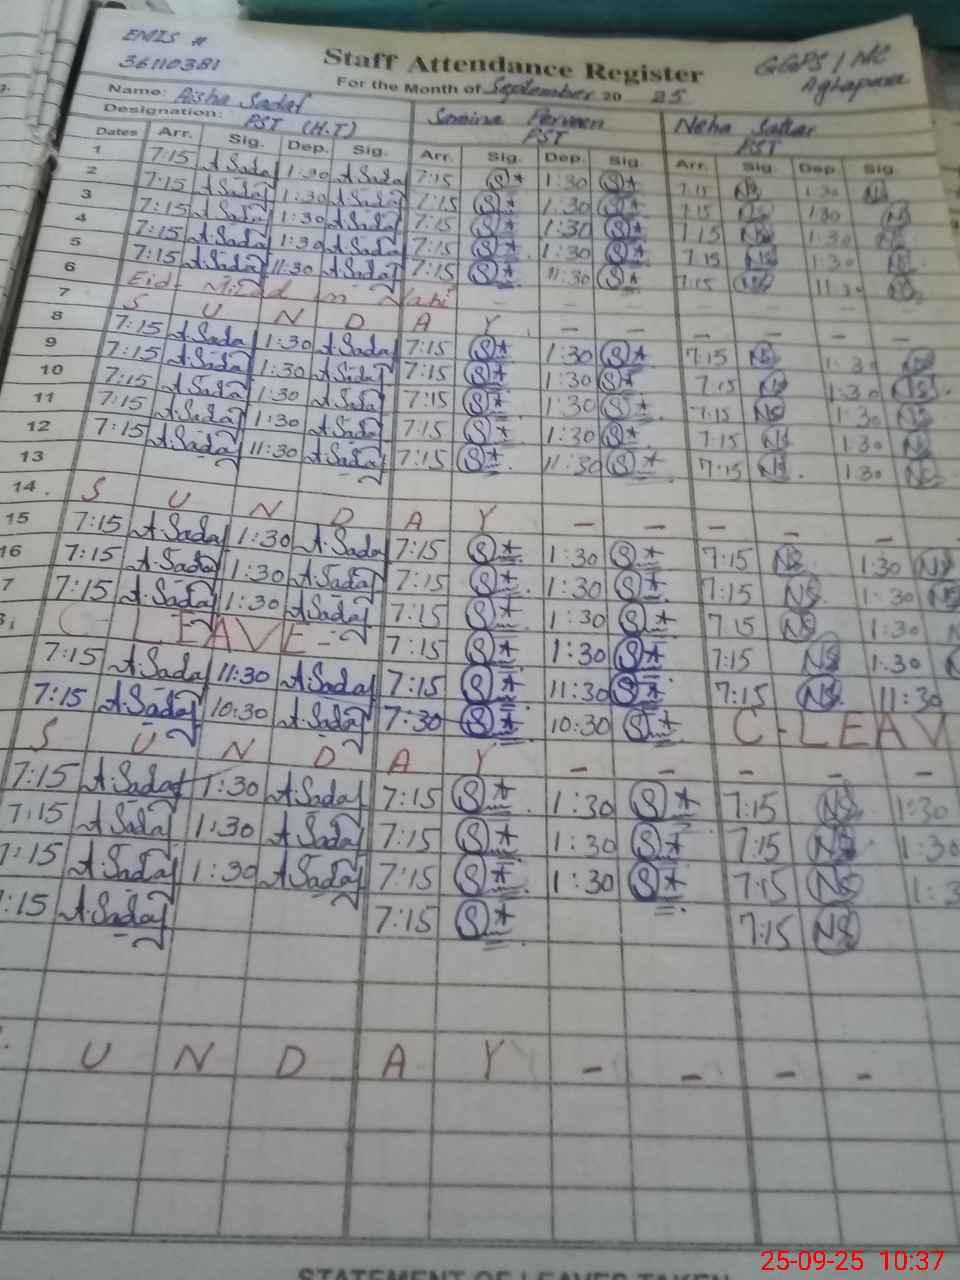 EMIS #
36110381
Staff Attendance Register
GGPS / MC
Aghapura
For the Month of September 20 25
Name: Aisha Sadaf
Samina Perveen
Neha Sattar
Designation: PST (H.T)
PST
PST
Dates Arr. Sig. Dep. Sig. Arr. Sig. Dep. Sig. Arr. Sig. Dep. Sig.
1 7:15 A.Sadaf 1:30 A.Sadaf 7:15 S* 1:30 S* 7:15 NS 1:30 NS
2 7:15 A.Sadaf 1:30 A.Sadaf 7:15 S* 1:30 S* 7:15 NS 1:30 NS
3 7:15 A.Sadaf 1:30 A.Sadaf 7:15 S* 1:30 S* 7:15 NS 1:30 NS
4 7:15 A.Sadaf 1:30 A.Sadaf 7:15 S* 1:30 S* 7:15 NS 1:30 NS
5 7:15 A.Sadaf 11:30 A.Sadaf 7:15 S* 11:30 S* 7:15 NS 11:30 NS
6 Eid Milad un Nabi - - - - - -
7 S U N D A Y - - - - - -
8 7:15 A.Sadaf 1:30 A.Sadaf 7:15 S* 1:30 S* 7:15 NS 1:30 NS
9 7:15 A.Sadaf 1:30 A.Sadaf 7:15 S* 1:30 S* 7:15 NS 1:30 NS
10 7:15 A.Sadaf 1:30 A.Sadaf 7:15 S* 1:30 S* 7:15 NS 1:30 NS
11 7:15 A.Sadaf 1:30 A.Sadaf 7:15 S* 1:30 S* 7:15 NS 1:30 NS
12 7:15 A.Sadaf 11:30 A.Sadaf 7:15 S* 11:30 S* 7:15 NS 1:30 NS
13
14. S U N D A Y - - - - -
15 7:15 A.Sadaf 1:30 A.Sadaf 7:15 S* 1:30 S* 7:15 NS 1:30 NS
16 7:15 A.Sadaf 1:30 A.Sadaf 7:15 S* 1:30 S* 7:15 NS 1:30 NS
7 7:15 A.Sadaf 1:30 A.Sadaf 7:15 S* 1:30 S* 7:15 NS 1:30 N
C - LEAVE - 7:15 S* 1:30 S* 7:15 NS 1:30
7:15 A.Sadaf 11:30 A.Sadaf 7:15 S* 11:30 S* 7:15 NS 11:30
7:15 A.Sadaf 10:30 A.Sadaf 7:30 S* 10:30 S* C - LEAV
S U N D A Y - - - - -
7:15 A.Sadaf 1:30 A.Sadaf 7:15 S* 1:30 S* 7:15 NS 1:30
7:15 A.Sadaf 1:30 A.Sadaf 7:15 S* 1:30 S* 7:15 NS 1:30
7:15 A.Sadaf 1:30 A.Sadaf 7:15 S* 1:30 S* 7:15 NS 1:3
:15 A.Sadaf 7:15 S* 7:15 NS
U N D A Y - - - -
25-09-25 10:37
STATEMENT OF LEAVES TAKEN